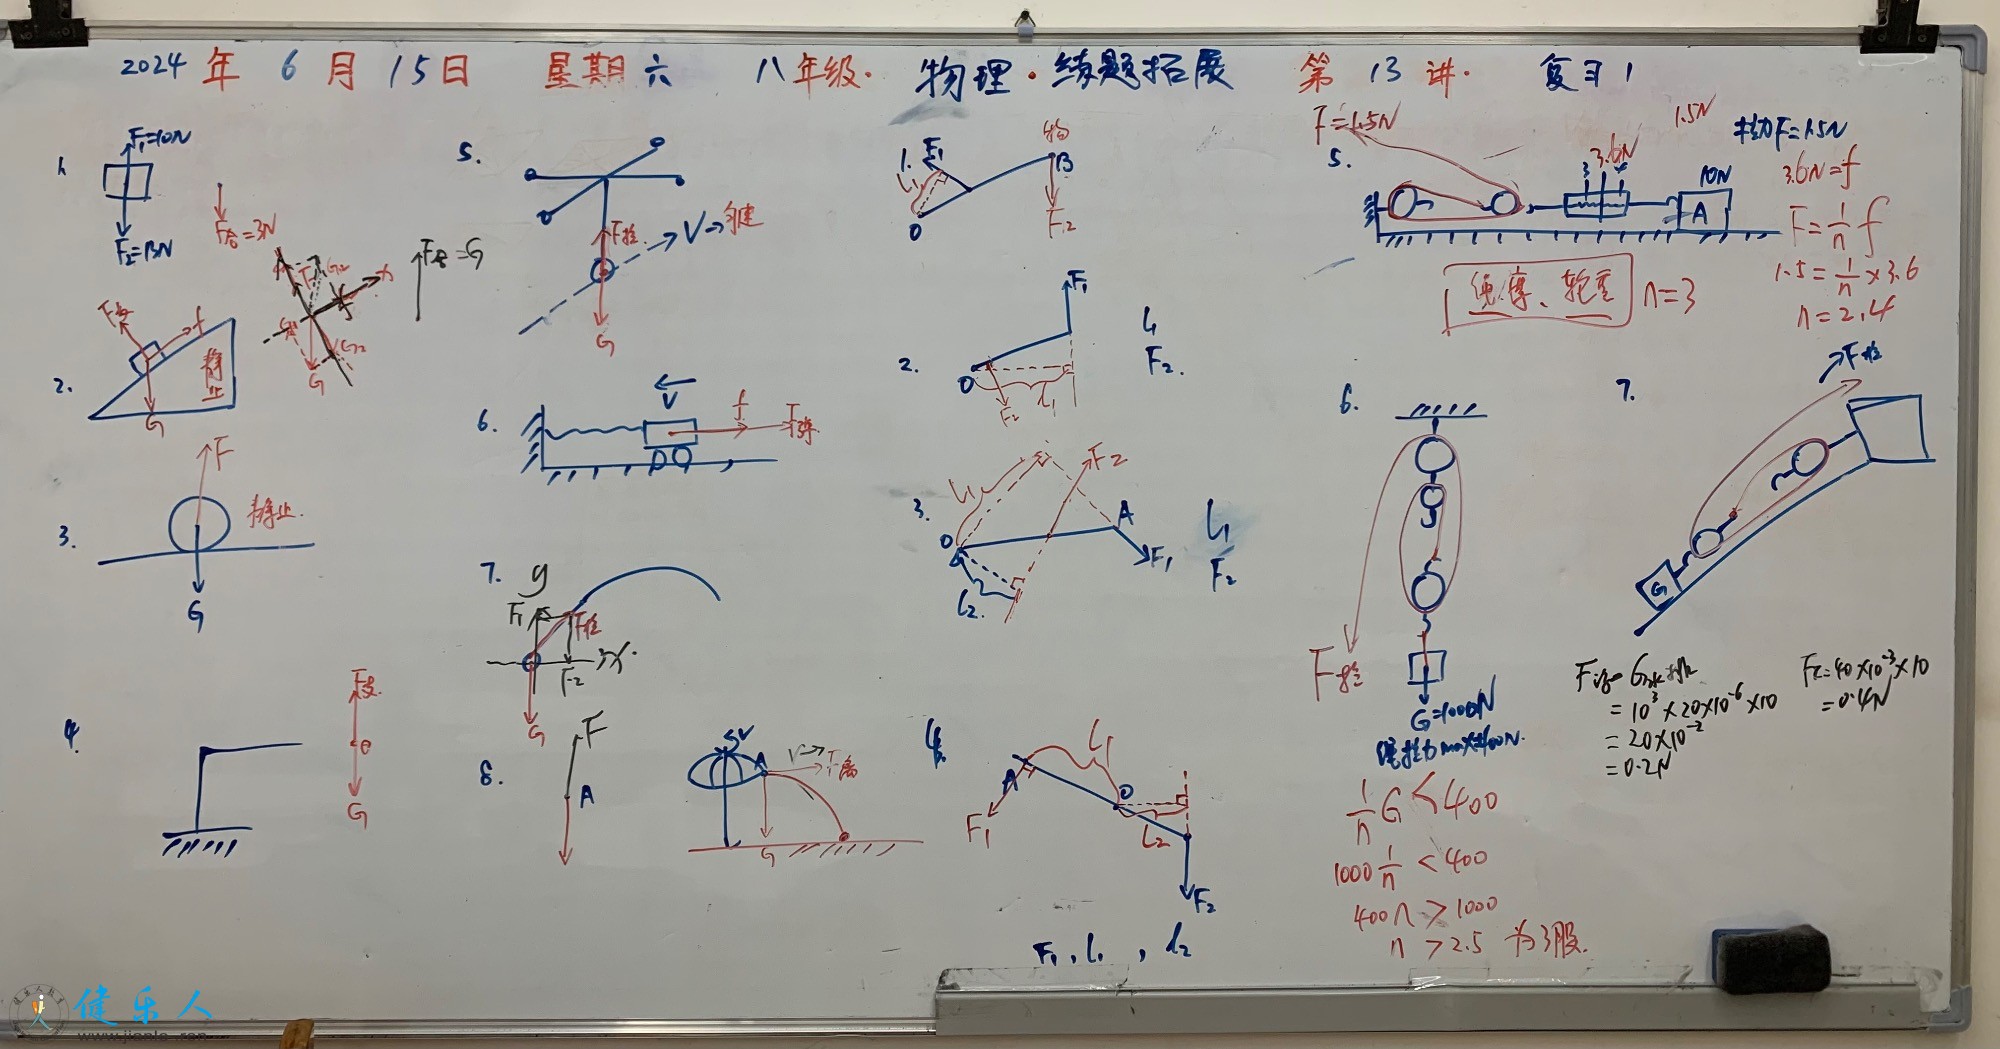 2024年6月15日 星期六 八年级·物理·练题拓展 第13讲· 复习1
1.
F₁=10N
F₂=13N
F合=3N
F合=G
2.
F支
f
静止
G
G
3.
F
静止
G
4.
F支
G
5.
F拉
V→
G
6.
V
f
F弹
7.
y
F₁
F拉
x
F₂
G
8.
F
A
A
V→
F离
G
1.
F₁
L₁
O
B
F₂
2.
F₁
O
L₁
F₂
L₁
F₂.
3.
L₁
F₂
O
A
F₁
L₂
L₁
F₂
4.
A
L₁
O
F₁
L₂
F₂
F₁, L₁, L₂
5.
F=1.5N
1.5N
拉力F=1.5N
3.6N
3 4
10N
A
3.6N=f
F=1/n f
1.5=1/n×3.6
n=2.4
绳摩、轮重 n=3
6.
F拉
G=1000N
绳拉力max=400N.
1/n G<400
1000 1/n<400
400n>1000
n>2.5 为3股.
7.
F拉
G
F浮=G水排
=10³×20×10⁻⁶×10
=20×10⁻²
=0.2N
=40×10⁻³×10
=0.4N
健乐人
www.jianle.ren